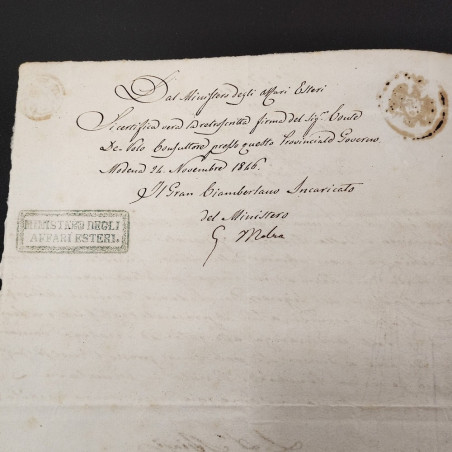 Dal Ministero degli affari Esteri
Si certifica vera la retroscritta firma del Sig.r Conte
De-Volo Consultore presso questo Provinciale Governo.
Modena 24. Novembre 1846.
Il Gran Ciamberlano Incaricato
del Ministero
G. Molza
MINISTERO DEGLI
AFFARI ESTERI.